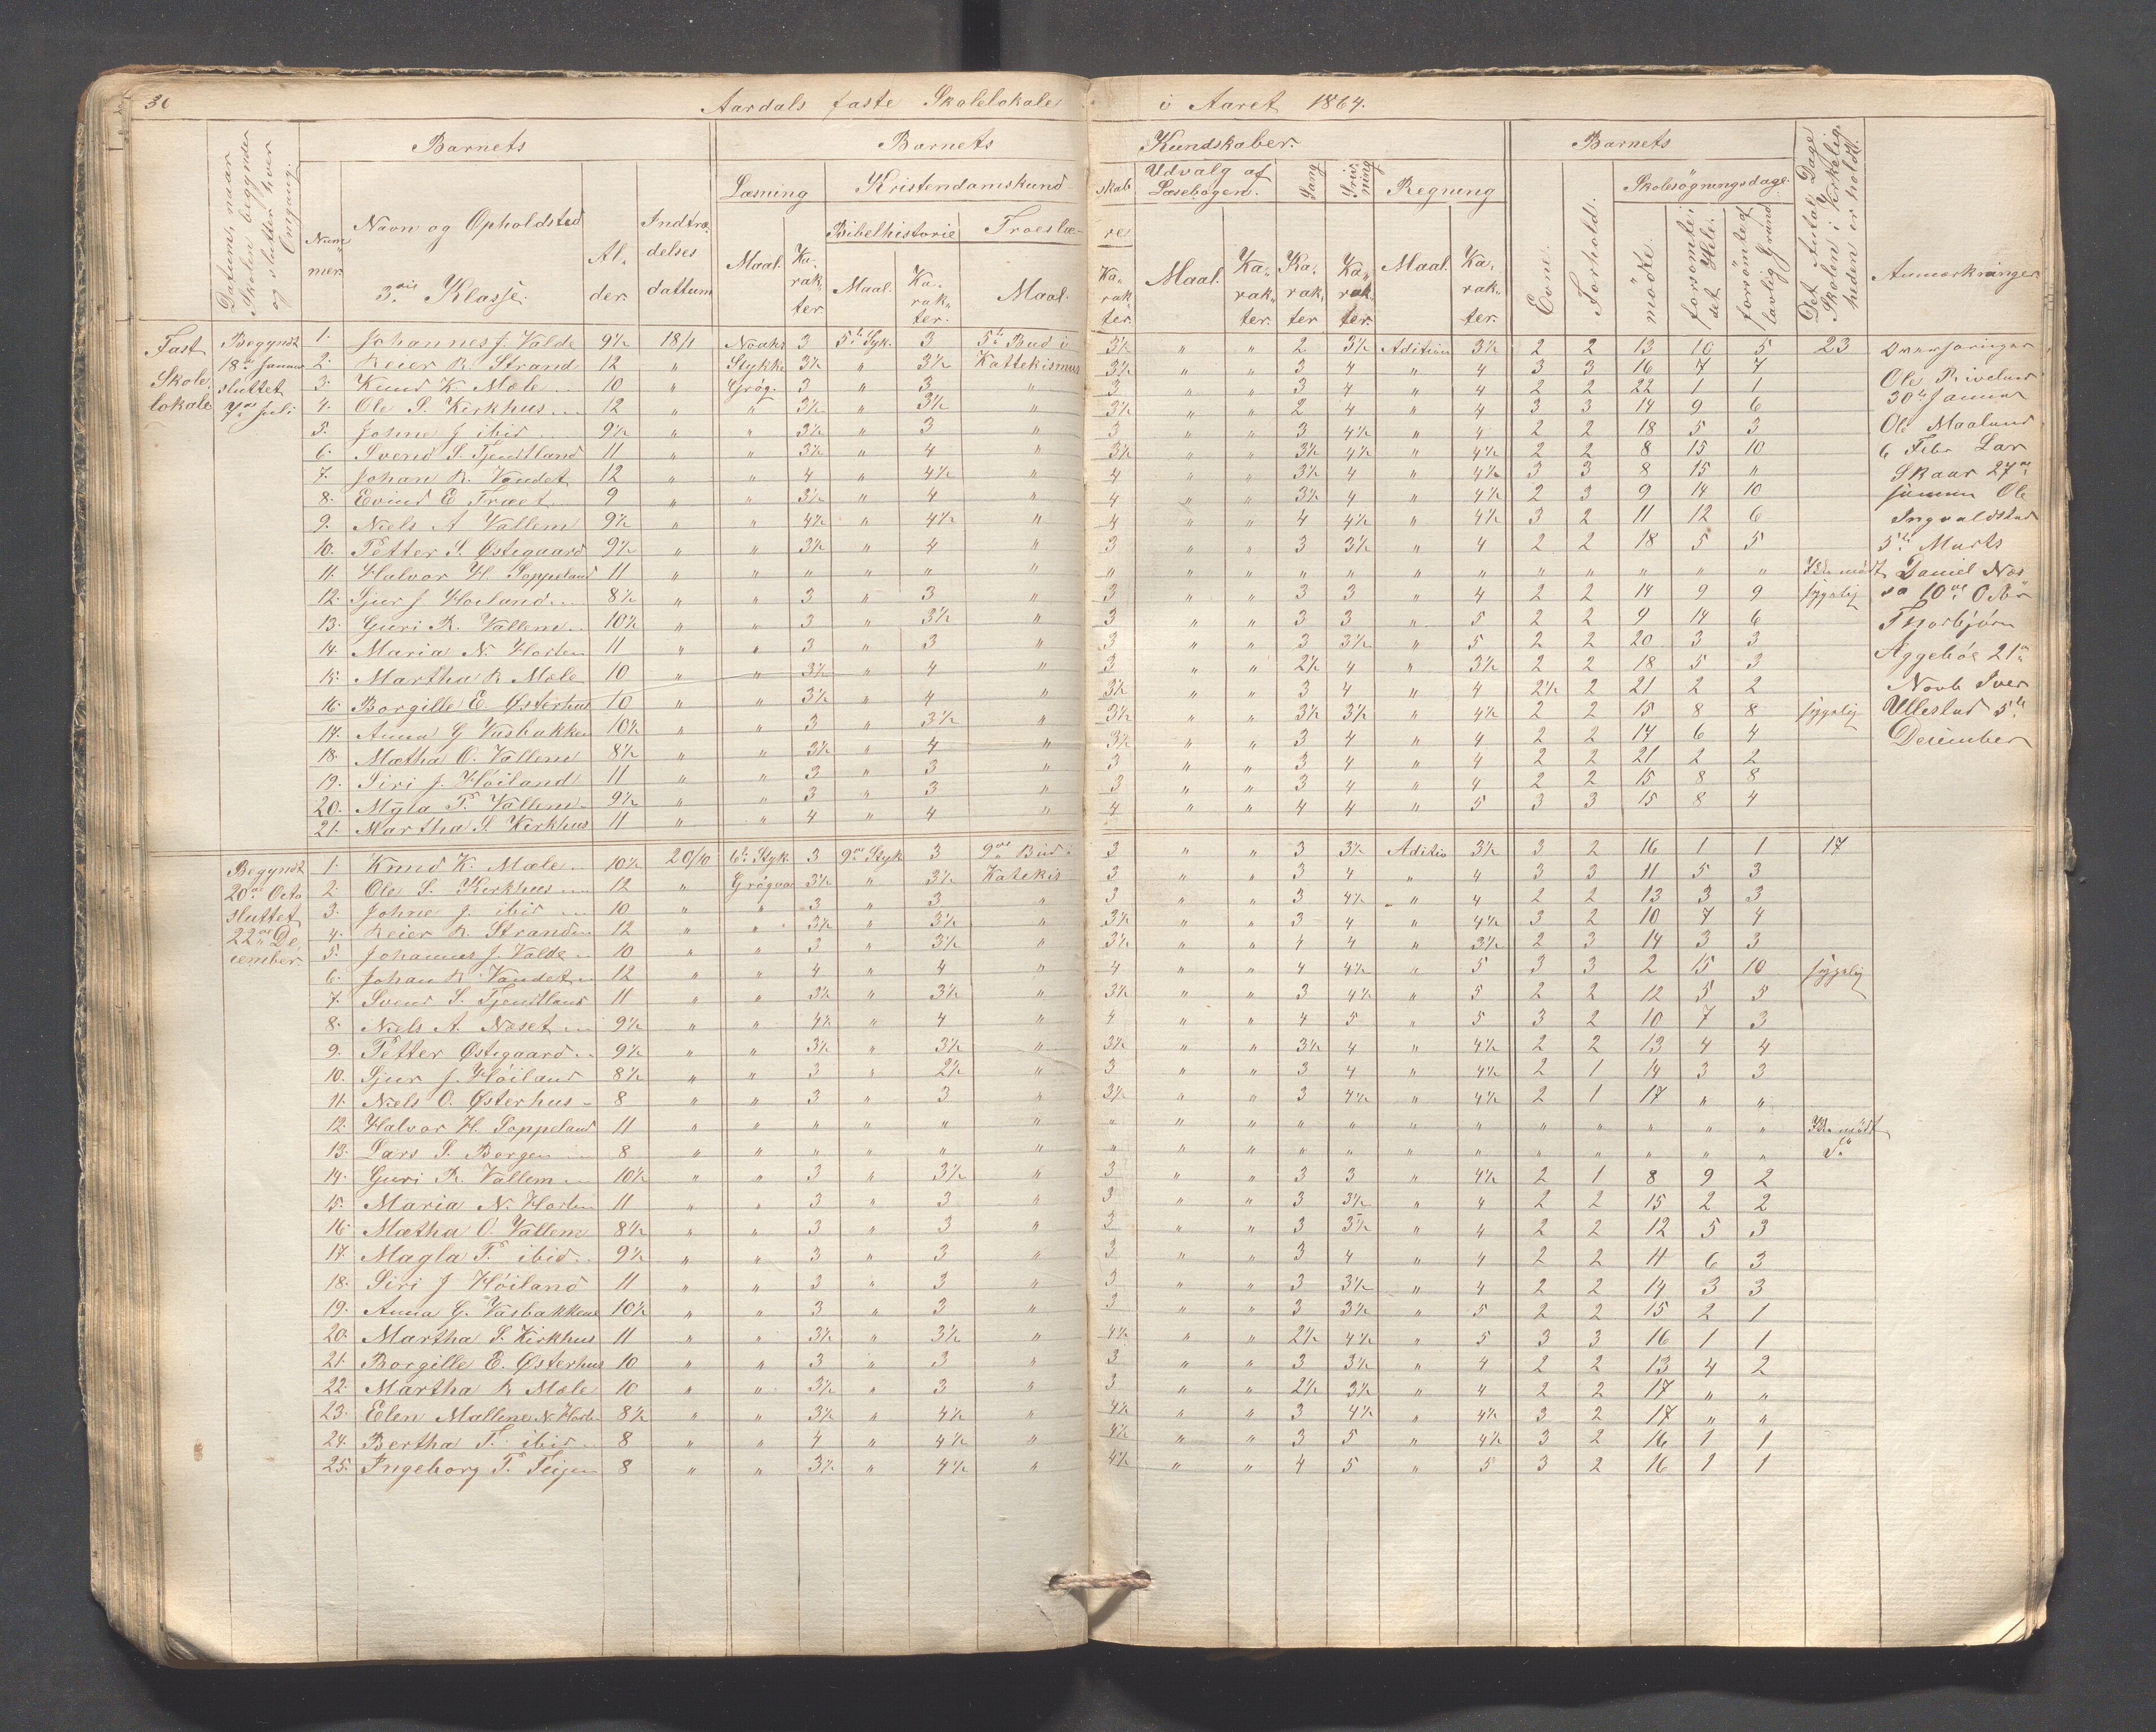 Aardals faste Skolelokale i Aaret 1864.
Datum, naar Skolen begynder og slutter hver Omgang.
Barnets
Num mer.
Navn og Opholdsted
3die Klasse.
Al- der.
Indtræ- delses dattum
Barnets Kundskaber.
Læsning
Maal. Ka- rak- ter.
Kristendomskund- skab
Bibelhistorie
Maal. Ka- rak- ter.
Troeslæ- re
Maal. Ka- rak- ter.
Udvalg af Læsebogen.
Maal. Ka- rak- ter.
Sang
Ka- rak- ter
Skriv- ning
Ka- rak- ter.
Regning
Maal. Ka- rak- ter.
Barnets
Evne. Forhold.
Skolesögningsdage.
mödte. forsömte i det Hele. forsömte af lovlig Grund
Det Antal Dage Skolen i Virkelig- heden er holdt.
Anmærkninger
Fast Skole- lokale
Begyndt 18de Januar sluttet 7de Juli
1. Johannes J. Valde 9½ 18/1 Noahs 3 5te Styk. 3 5te Bud i 3½ " " 2 3½ Adition 3½ 2 2 13 10 5 23
2. Reier R. Strand 12 " Stykke 3½ " 3½ Kattekismus 3½ " " 3 4 " 4 3 3 16 7 7
3. Knud K. Mæle 10 " Grög. 3 " 3 " 3 " " 3 4 " 4 2 2 22 1 1
4. Ole S. Kirkhus 12 " " 3½ " 3½ " 3½ " " 2 4 " 4 3 3 14 9 6
5. Johne J. ibid 9½ " " 3½ " 3 " 3 " " 3 4½ " 4 2 2 18 5 3
6. Svend S. Tjentland 11 " " 3½ " 4 " 3½ " " 3½ 4½ " 4½ 2 2 8 15 10
7. Johan R. Vandet 12 " " 4 " 4½ " 4 " " 3½ 4 " 4½ 3 3 8 15 "
8. Evind E Træet 9 " " 3½ " 4 " 4 " " 3½ 4 " 4½ 2 3 9 14 10
9. Niels A Vallem 9½ " " 4½ " 4½ " 4 " " 4 4½ " 4½ 3 2 11 12 6
10. Petter S. Østegaard 9½ " " 3½ " 4 " 3 " " 3 3½ " 4 2 2 18 5 5
11. Halvor H. Soppeland 11 " " " " " " " " " " " " " " " " " " Ikke mödt
12. Sjur J Hoiland 8½ " " 3 " 3 " 3 " " 3 3 " 4 2 2 14 9 9 sygelig
13. Guri R. Vallem 10½ " " 3 " 3½ " 3 " " 3 3 " 5 2 2 9 14 6
14. Maria N. Horten 11 " " 3 " 3 " 3 " " 3 3½ " 5 2 2 20 3 3
15. Martha R Mæle 10 " " 3½ " 4 " 3 " " 2½ 4 " 3½ 2 2 18 5 3
16. Borgille E. Østerhus 10 " " 3½ " 4 " 3½ " " 3 4 " 4 2½ 2 21 2 2
17. Anna G Vasbakken 10½ " " 3 " 3½ " 3½ " " 3½ 3½ " 4½ 2 2 15 8 8 sygelig
18. Mætha O. Vallem 8½ " " 3½ " 4 " 3½ " " 3 4 " 4 2 2 14 6 4
19. Siri J. Höiland 11 " " 3 " 3 " 3 " " 3 4 " 4 2 2 21 2 2
20. Magla T. Vallem 9½ " " 3 " 3 " 3 " " 3 4 " 4 2 2 15 8 8
21. Martha S. Kirkhus 11 " " 4 " 4 " 4 " " 4 4 " 5 3 3 15 8 4
Ole Riveland
30te Januar
Ole Maaland
6 Febr Lar
Skaar 27de
Ole
Ingvaldstad
5te Marts
Daniel Næs
10de Octbr
Thorbjørn
Aggeböe 21de
Novb Iver
Ullestad 5te
December
Begyndt 20de Octo sluttet 22de De- cember.
1. Knud K. Mæle 10½ 20/10 6te Styk. 3 9de Styk 3 9de Bud i 3 " " 3 3½ Aditio 3½ 3 2 16 1 1 17
2. Ole S. Kirkhus 12 " Grögaa 3½ " 3½ Katekis 3 " " 3 4 " 4 3 3 11 5 3
3. Johne J. ibid 10 " " 3 " 3 " 3 " " 3 4½ " 4 2 2 13 3 3
4. Reier R. Strand 12 " " 3½ " 3½ " 3½ " " 3 4 " 4½ 3 2 10 7 4
5. Johannes J. Valde 10 " " 3 " 3½ " 3½ " " 4 4 " 3½ 2 3 14 3 3
6. Johan R. Vandet 12 " " 4 " 4 " 4 " " 4 4½ " 5 3 3 2 15 10 sygelig
7. Svend S. Tjentland 11 " " 3½ " 3½ " 3½ " " 3 4½ " 5 2 2 12 5 5
8. Niels A. Næset 9½ " " 4½ " 4 " 4 " " 4 5 " 5 3 2 10 7 3
9. Petter Østegaard 9½ " " 3½ " 3½ " 3½ " " 3½ 4 " 4½ 2 2 13 4 4
10. Sjur J. Höiland 8½ " " 3 " 2½ " 3 " " 3 4 " 4½ 2 1 14 3 3
11. Niels O. Østerhus 8 " " 3 " 3 " 3½ " " 3 4½ " 4½ 2 1 17 " "
12. Halvor H. Soppeland 11 " " " " " " " " " " " " " " " " " " Ikke mödt
13. Lars S. Borgen 8 " " " " " " " " " " " " " " " " " "
14. Guri R. Vallem 10½ " " 3 " 3½ " 3 " " 3 3 " 4½ 2 1 8 9 2
15. Maria N. Horten 11 " " 3 " 3 " 3 " " 3 3½ " 4 2 2 15 2 2
16. Mætha O. Vallem 8½ " " 3 " 3 " 3 " " 3 3½ " 4 2 2 12 5 3
17. Magla T. ibid 9½ " " 3 " 3 " 3 " " 3 4 " 4 2 2 11 6 3
18. Siri J Höiland 11 " " 3 " 3 " 3 " " 3 3½ " 4 2 2 14 3 3
19. Anna G. Vasbakken 10½ " " 3 " 3 " 3 " " 3 3½ " 5 2 2 15 2 1
20. Martha S. Kirkhus 11 " " 3½ " 3½ " 4½ " " 2½ 4½ " 5 3 3 16 1 1
21. Borgille E. Østerhus 10 " " 3 " 3 " 3 " " 3 3½ " 4 2 2 13 4 2
22. Martha R Mæle 10 " " 3½ " 3 " 3 " " 2½ 3½ " 4 2 2 17 " "
23. Elen Mallene N. Horte 8½ " " 3½ " 4½ " 4½ " " 3 4½ " 4½ 3 2 17 " "
24. Bertha T. ibid 8 " " 4 " 4½ " 4½ " " 3 5 " 4½ 3 2 16 1 1
25. Ingeborg T. Teigen 8 " " 3½ " 4½ " 4½ " " 4 5 " 5 3 2 16 1 1